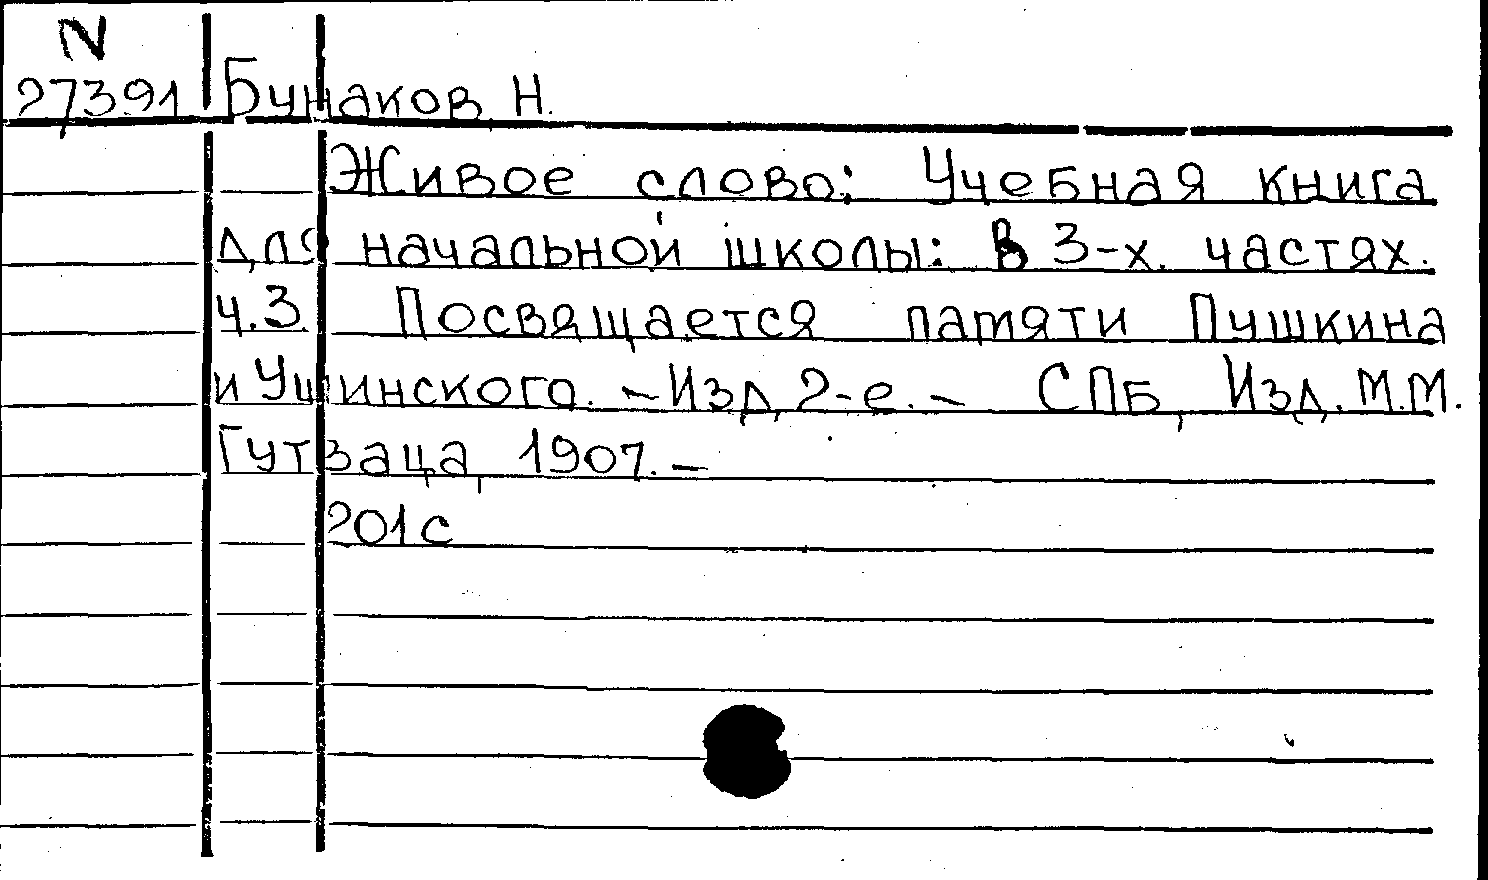 N
27391 Бунаков Н.
Живое слово: Учебная книга
для начальной школы: В 3-х. частях.
ч.3. Посвящается памяти Пушкина
и Ушинского. - Изд. 2-е. - СПБ, Изд. М.М.
Гутзаца, 1907. -
201с